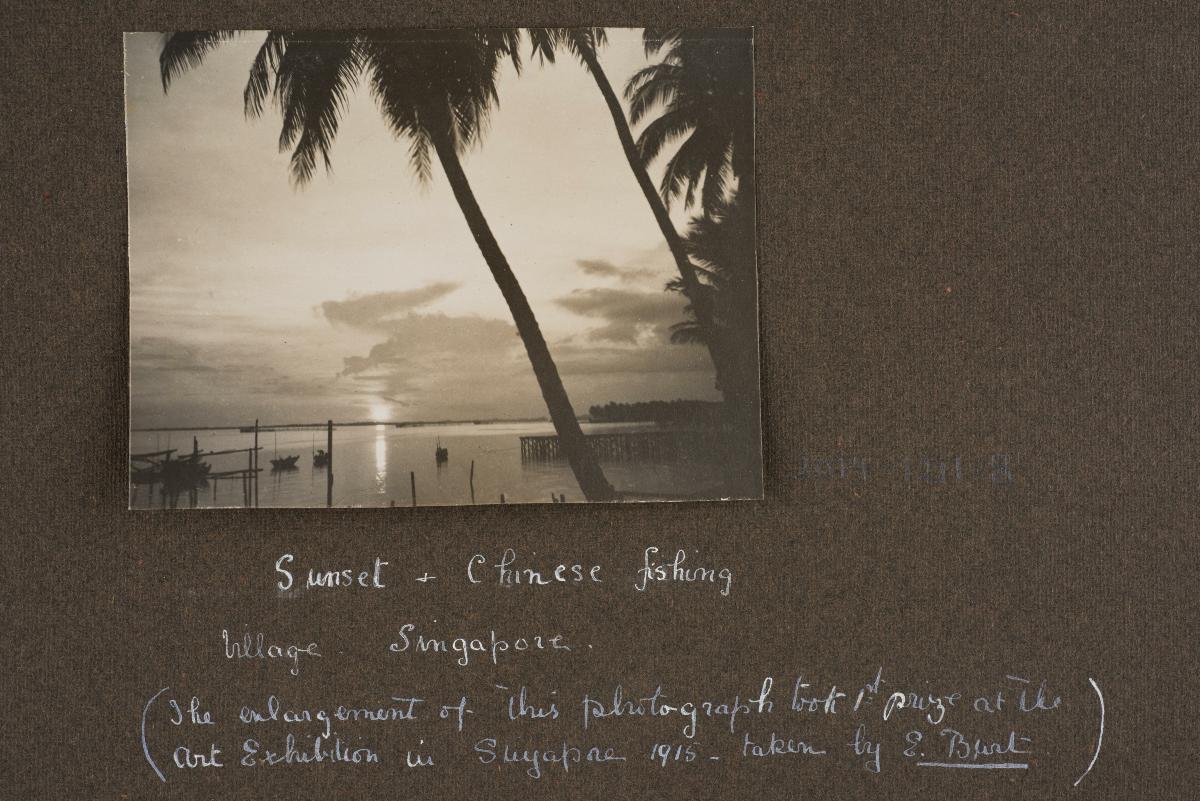 Sunset + Chinese fishing
Village. Singapore.
(The enlargement of this photograph took 1st prize at the
Art Exhibition in Singapore 1915 - taken by E. Burt)